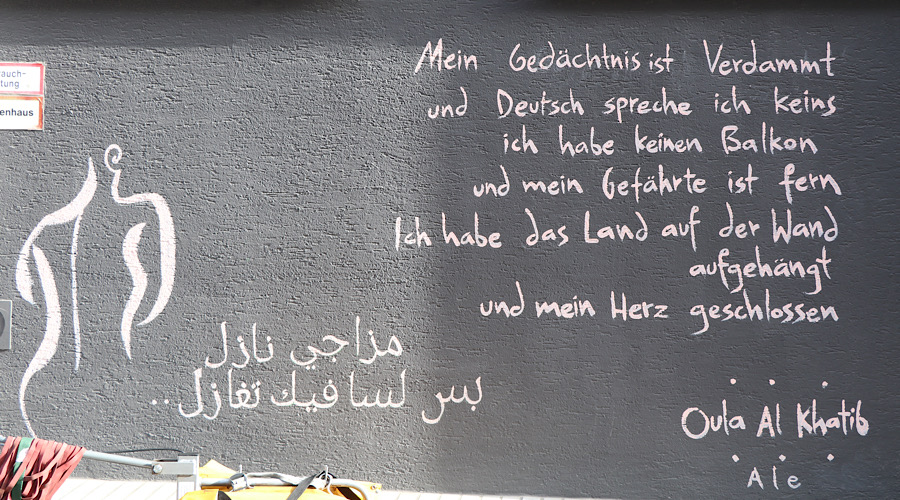 Mein Gedächtnis ist Verdammt
und Deutsch spreche ich keins
ich habe keinen Balkon
und mein Gefährte ist fern
Ich habe das Land auf der Wand
aufgehängt
und mein Herz geschlossen
مزاجي نازل
بس لسا فيك تغازل..
Oula Al Khatib
Ale
auch-
tung
enhaus